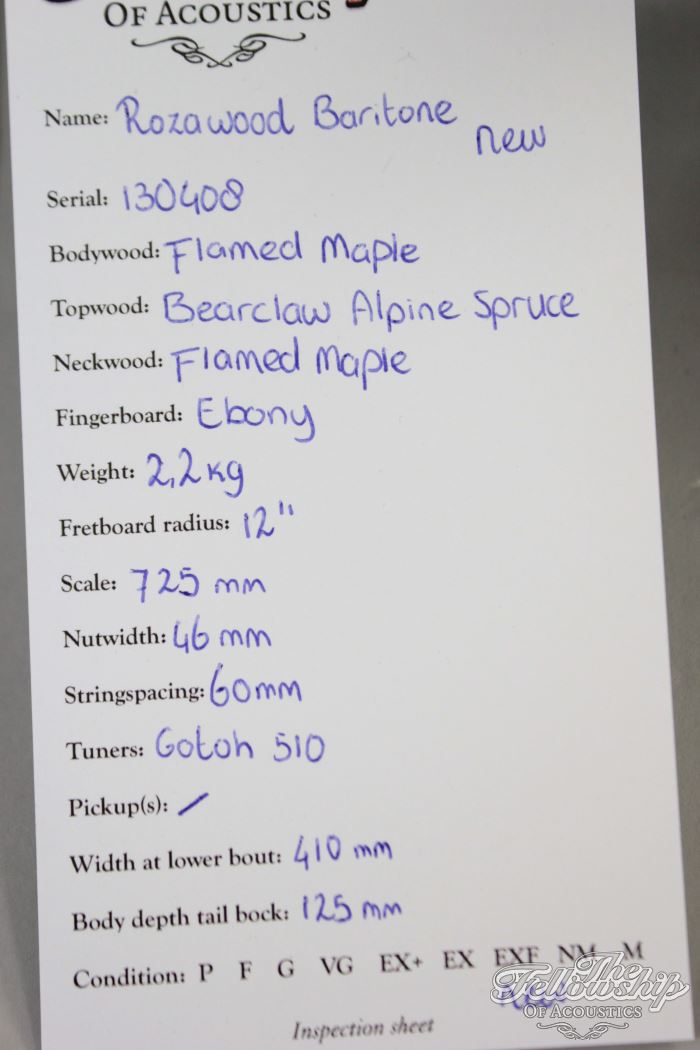 OF ACOUSTICS
Name: Rozawood Baritone
new
Serial: 130408
Bodywood: Flamed Maple
Topwood: Bearclaw Alpine Spruce
Neckwood: Flamed Maple
Fingerboard: Ebony
Weight: 2,2kg
Fretboard radius: 12"
Scale: 725 mm
Nutwidth: 46 mm
Stringspacing: 60mm
Tuners: Gotoh 510
Pickup(s): /
Width at lower bout: 410 mm
Body depth tail bock: 125 mm
Condition: P F G VG EX+ EX EXF NM M
The
Fellowship
OF ACOUSTICS
Inspection sheet